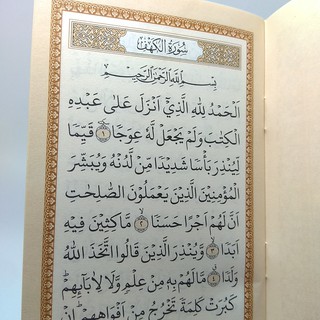 سُورَةُ الْكَهْفِ
بِسْمِ اللهِ الرَّحْمٰنِ الرَّحِيْمِ
اَلْحَمْدُ لِلّٰهِ الَّذِيْٓ اَنْزَلَ عَلٰى عَبْدِهِ
الْكِتٰبَ وَلَمْ يَجْعَلْ لَّهٗ عِوَجًا ۝١ قَيِّمًا
لِّيُنْذِرَ بَأْسًا شَدِيْدًا مِّنْ لَّدُنْهُ وَيُبَشِّرَ
الْمُؤْمِنِيْنَ الَّذِيْنَ يَعْمَلُوْنَ الصّٰلِحٰتِ
اَنَّ لَهُمْ اَجْرًا حَسَنًا ۝٢ مَّاكِثِيْنَ فِيْهِ
اَبَدًا ۝٣ وَّيُنْذِرَ الَّذِيْنَ قَالُوا اتَّخَذَ اللّٰهُ
وَلَدًا ۝٤ مَا لَهُمْ بِهٖ مِنْ عِلْمٍ وَّلَا لِاٰبَآىِٕهِمْ
كَبُرَتْ كَلِمَةً تَخْرُجُ مِنْ اَفْوَاهِهِمْ اِنْ